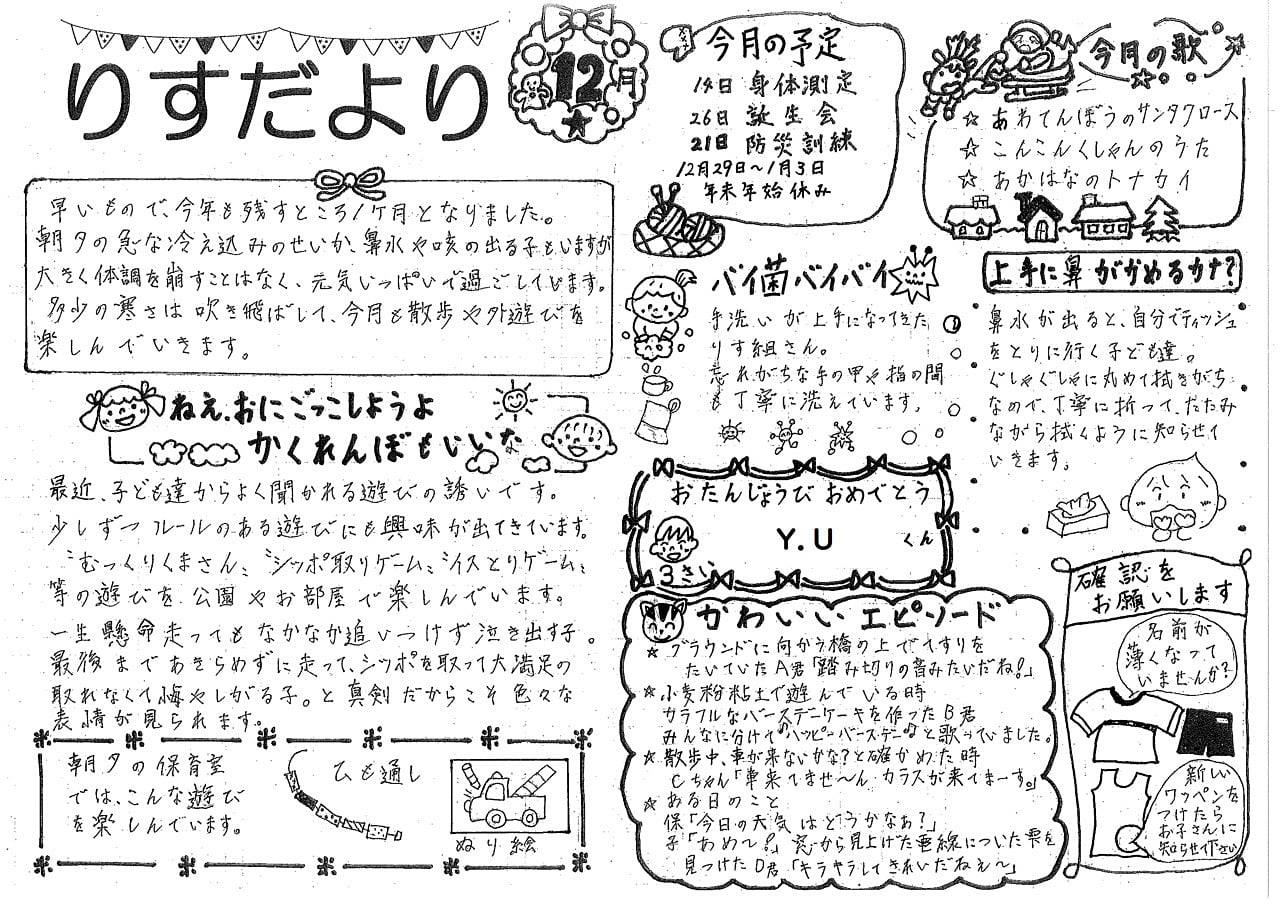 りすだより
12月
今月の予定
14日 身体測定
26日 誕生会
21日 防災訓練
12月29日～1月3日
年末年始休み
今月の歌
☆ あわてんぼうのサンタクロース
☆ こんこんくしゃんのうた
☆ あかはなのトナカイ
早いもので、今年も残すところ1ヶ月となりました。
朝夕の急な冷え込みのせいか、鼻水や咳の出る子もいますが
大きく体調を崩すことはなく、元気いっぱいで過ごしています。
多少の寒さは吹き飛ばして、今月も散歩や外遊びを
楽しんでいきます。
ねえ、おにごっこしようよ
かくれんぼもいいな
最近、子ども達からよく聞かれる遊びの誘いです。
少しずつルールのある遊びにも興味が出てきています。
〝むっくりくまさん〟〝シッポ取りゲーム〟〝イスとりゲーム〟
等の遊びを公園やお部屋で楽しんでいます。
一生懸命走ってもなかなか追いつけず泣き出す子。
最後まであきらめずに走って、シッポを取って大満足の
取れなくて悔やしがる子。と真剣だからこそ色々な
表情が見られます。
朝夕の保育室
では、こんな遊び
を楽しんでいます。
ひも通し
ぬり絵
バイ菌バイバイ
手洗いが上手になってきた
りす組さん。
忘れがちな手の甲や指の間
も丁寧に洗えています。
上手に鼻がかめるカナ?
鼻水が出ると、自分でティッシュ
をとりに行く子ども達。
ぐしゃぐしゃに丸めて拭きがち
なので、丁寧に折って、たたみ
ながら拭くように知らせて
いきます。
おたんじょうび おめでとう
Y.U くん
3さい
かわいいエピソード
☆ グラウンドに向かう橋の上でてすりを
たいていたA君「踏み切りの音みたいだね!」
☆ 小麦粉粘土で遊んでいる時
カラフルなバースデーケーキを作ったB君
みんなに分けての「ハッピーバースデー♪」と歌っていました。
☆ 散歩中、車が来ないかな?と確かめた時
Cちゃん「車来てませ〜ん カラスが来てまーす。」
☆ ある日のこと
保「今日の天気はどうかなぁ?」
子「あめ〜!」窓から見上げた電線についた雫を
見つけたD君「キラキラしてきれいだねぇ〜」
確認を
お願いします
名前が
薄くなって
いませんか?
新しい
ワッペンを
つけたら
お子さんに
知らせて下さい